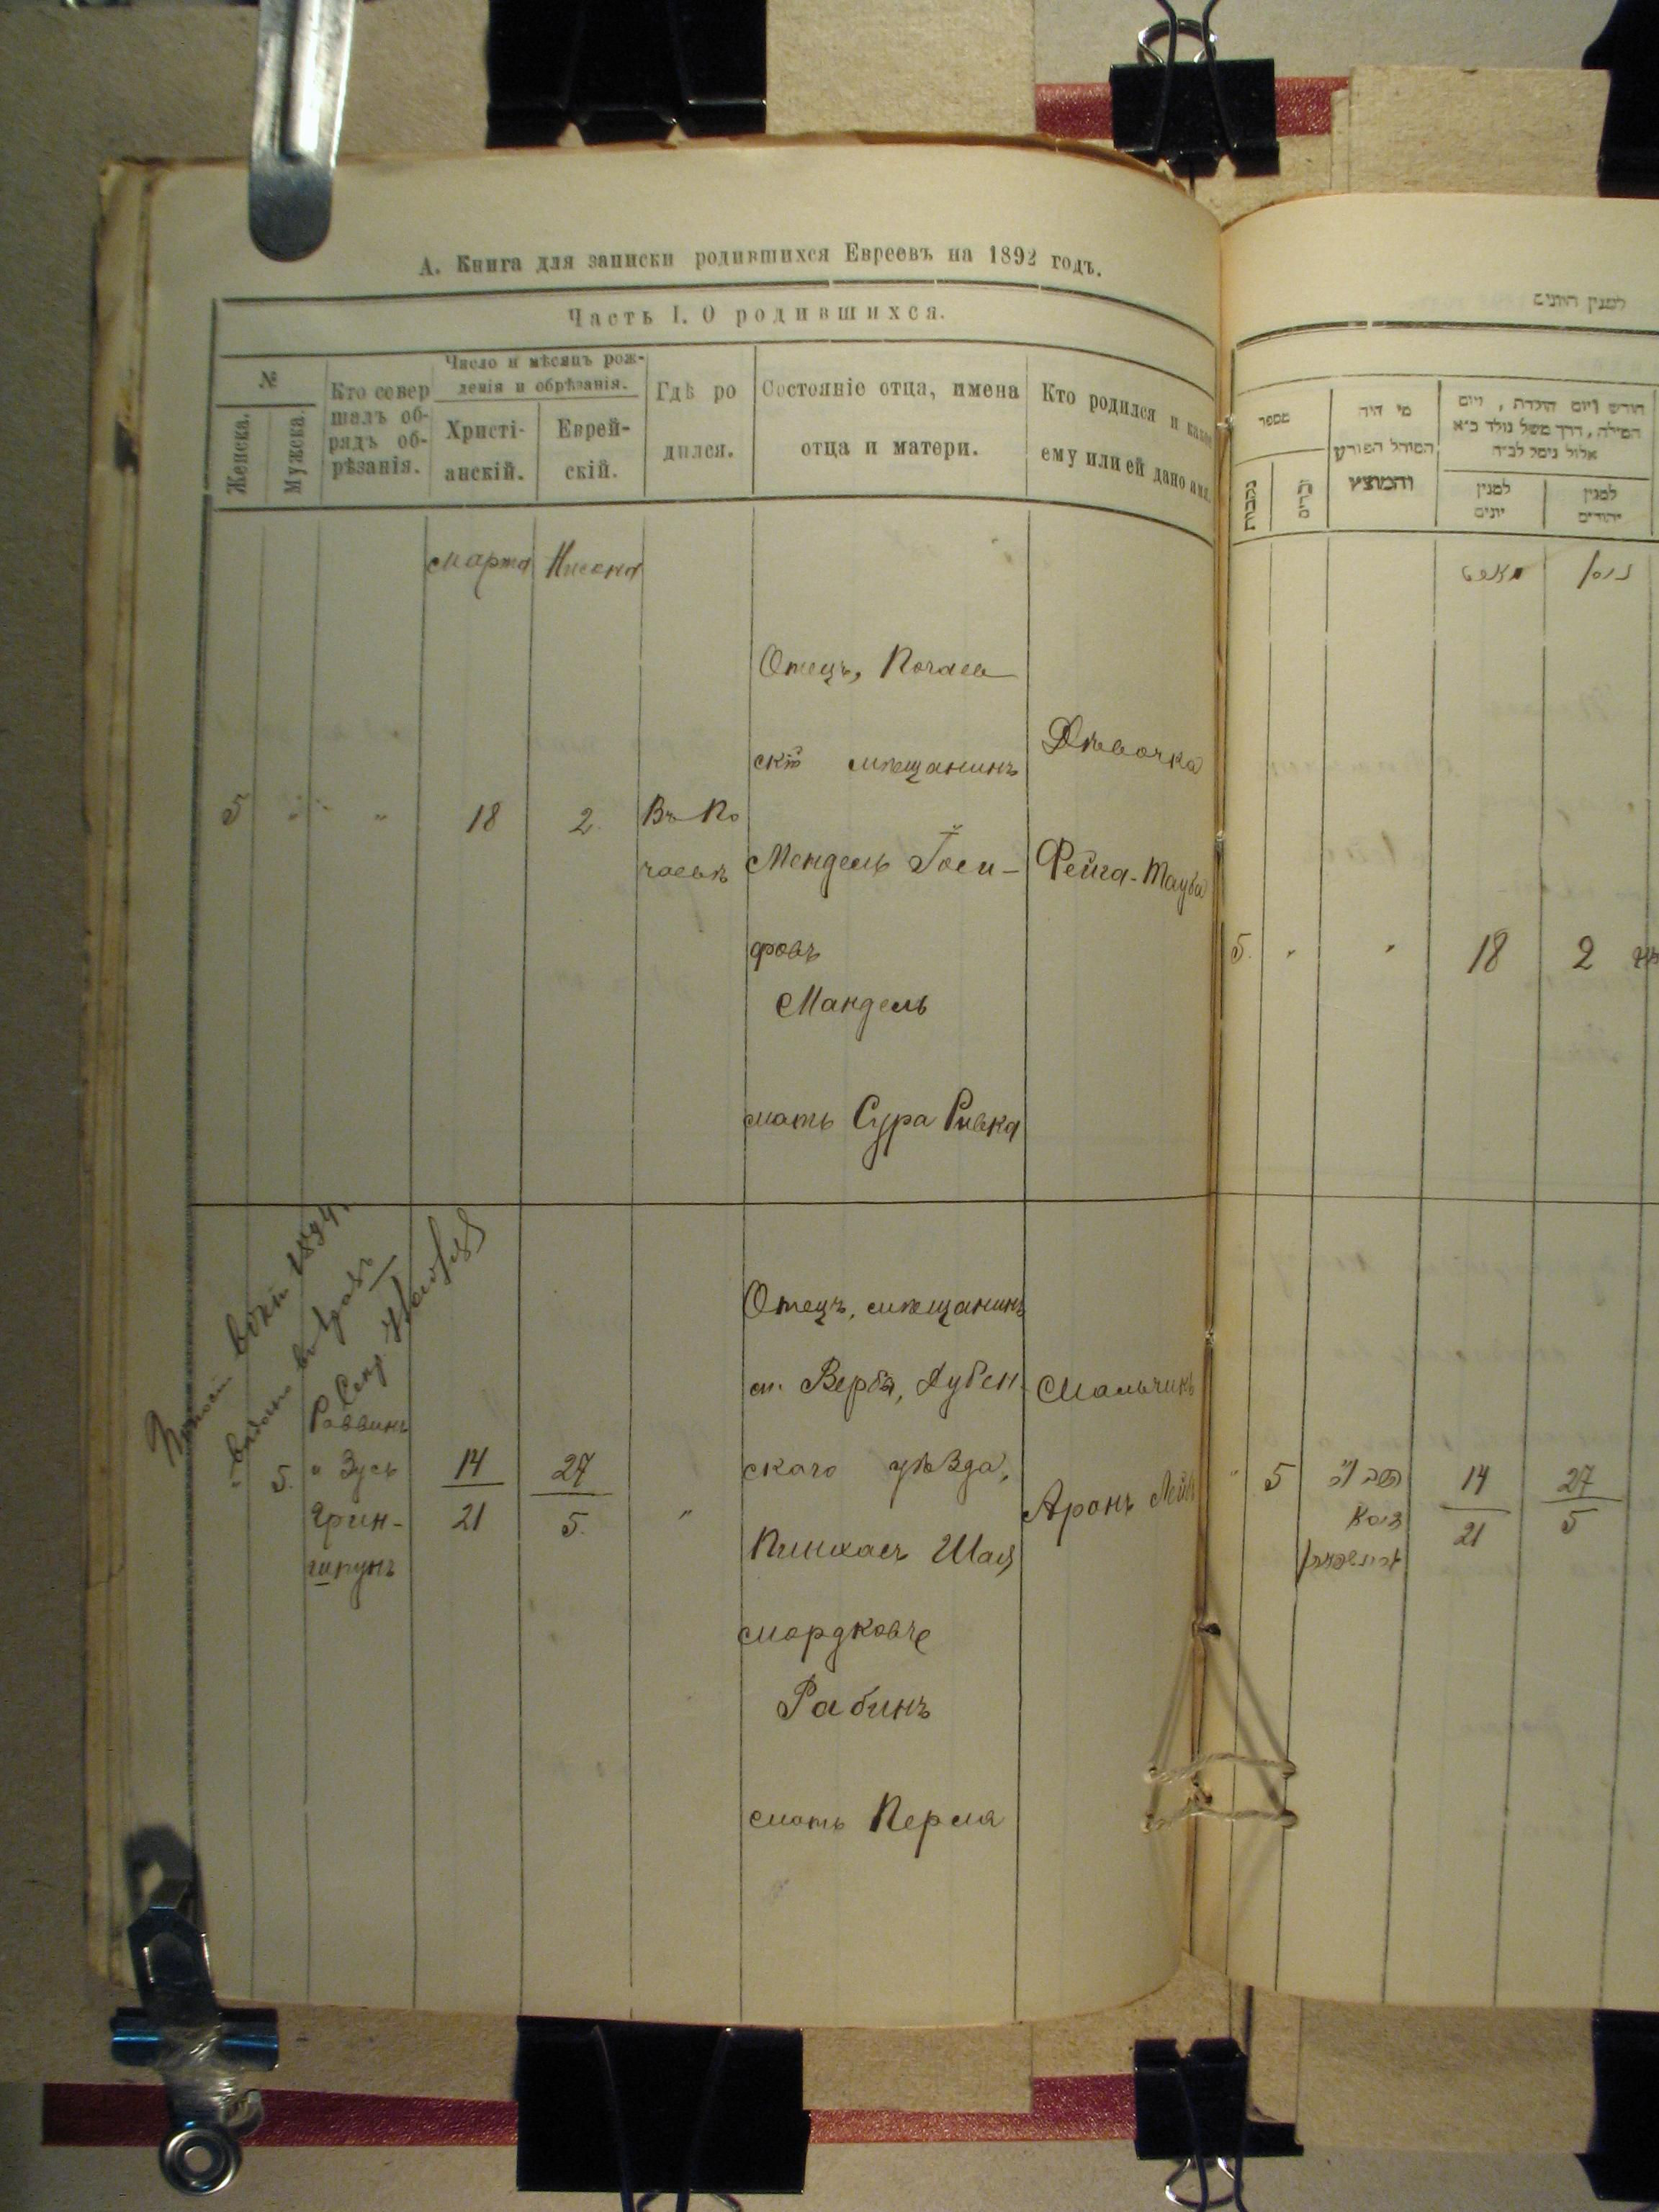 А. Книга для записки родившихся Евреевъ на 1892 годъ.
Часть I. О родившихся.
№
Женска.
Мужска.
Кто совер
шалъ об-
рядъ об-
рѣзанія.
Число и мѣсяцъ рож-
денія и обрѣзанія.
Христі-
анскій.
Еврей-
скій.
Гдѣ ро
дился.
Состояніе отца, имена
отца и матери.
Кто родился и какое
ему или ей дано имя.
марта
Нисана
5
"
"
18
2.
Въ По
чаевѣ
Отецъ, Почаев
скій мѣщанинъ
Мендель Іоси-
фовъ
Мандель
мать Сура Ривка
Дѣвочка
Фейга-Тауба
1894
Секр.
"
5.
Раввинъ
" Зусь
Грин-
шпунъ
14
21
27
5.
"
Отецъ, мѣщанинъ
м. Верба, Дубен-
скаго уѣзда,
Пинхасъ Шая
Мордковъ
Рабинъ
мать Перля
Мальчикъ
Аронъ Лейб
למנין היונים
מספר
נקבות
זכרים
מי היה
המוהל הפורע
והמוצץ
חודש ויום הולדת, ויום
המילה,
למנין
יונים
למנין
יהודים
מארט
ניסן
5.
"
"
18
2
"
5
14
21
27
5